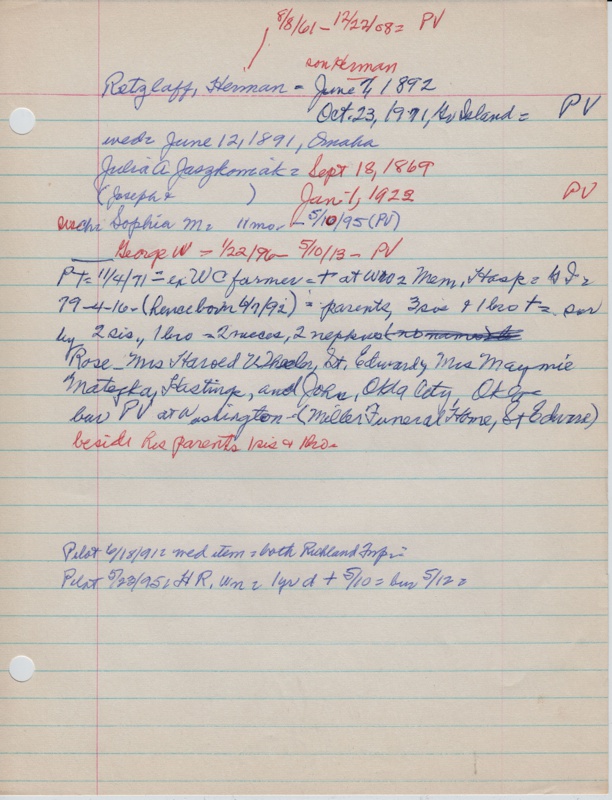 8/8/61 - 12/22/08= PV
son Herman
Retzlaff, Herman = June 7, 1892
Oct. 23, 1971, Gr Island = PV
wed= June 12, 1891, Omaha
Julia A Jaszkowiak= Sept 18, 1869
(Joseph & ) Jan 1, 1923 PV
Sophia M= 11 mo - 5/10/95 (PV)
George W - 1/22/96 - 5/10/13 - PV
PT= 11/4/71 = ex WC farmer = + at Mem. Hosp = G I =
79-4-16 - (hence born 6/7/92) = parents, 3 sis & 1 bro + = sur
by 2 sis., 1 bro = 2 nieces, 2 nephews
Rose - Mrs Harold Wheeler, St. Edward, Mrs Maymie
Matejka, Hastings, and John, Okla City, Okla
bur PV at Washington - (Miller Funeral Home, St Edward)
beside his parents 1 sis & 1 bro
Pilot 6/18/91= wed item = both Richland Twp =
Pilot 5/22/95, H R, Wn = 1 yr d + 5/10 = bur 5/12 =